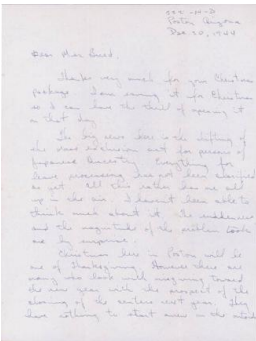 Poston, Arizona
Dec. 20, 1944
Dear Miss Breed,
Thanks very much for your Christmas
package. I am saving it for Christmas
so I can have the thrill of opening it
on that day.
The big news here is the lifting of
the mass exclusion act for persons of
Japanese Ancestry. Everything for
leave processing has not been clarified
as yet. All this rather has me all
up in the air. I haven't been able to
think much about it. The suddenness
and the magnitude of the problem
me by surprise.
Christmas here in Poston will be
one of Thanksgiving. However there are
many who look with misgiving toward
the new year with the prospect of the
closing of the centers next year. They
have nothing to start anew in the outside